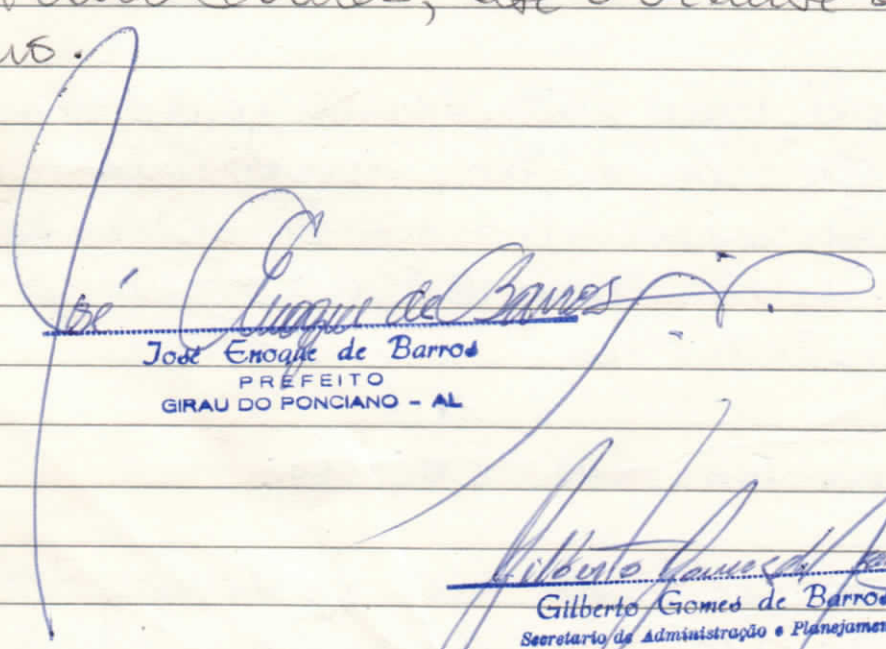 até o
José Enoque de Barros
José Enoque de Barros
PREFEITO
GIRAU DO PONCIANO - AL
Gilberto Gomes de
Gilberto Gomes de Barros
Secretario de Administração e